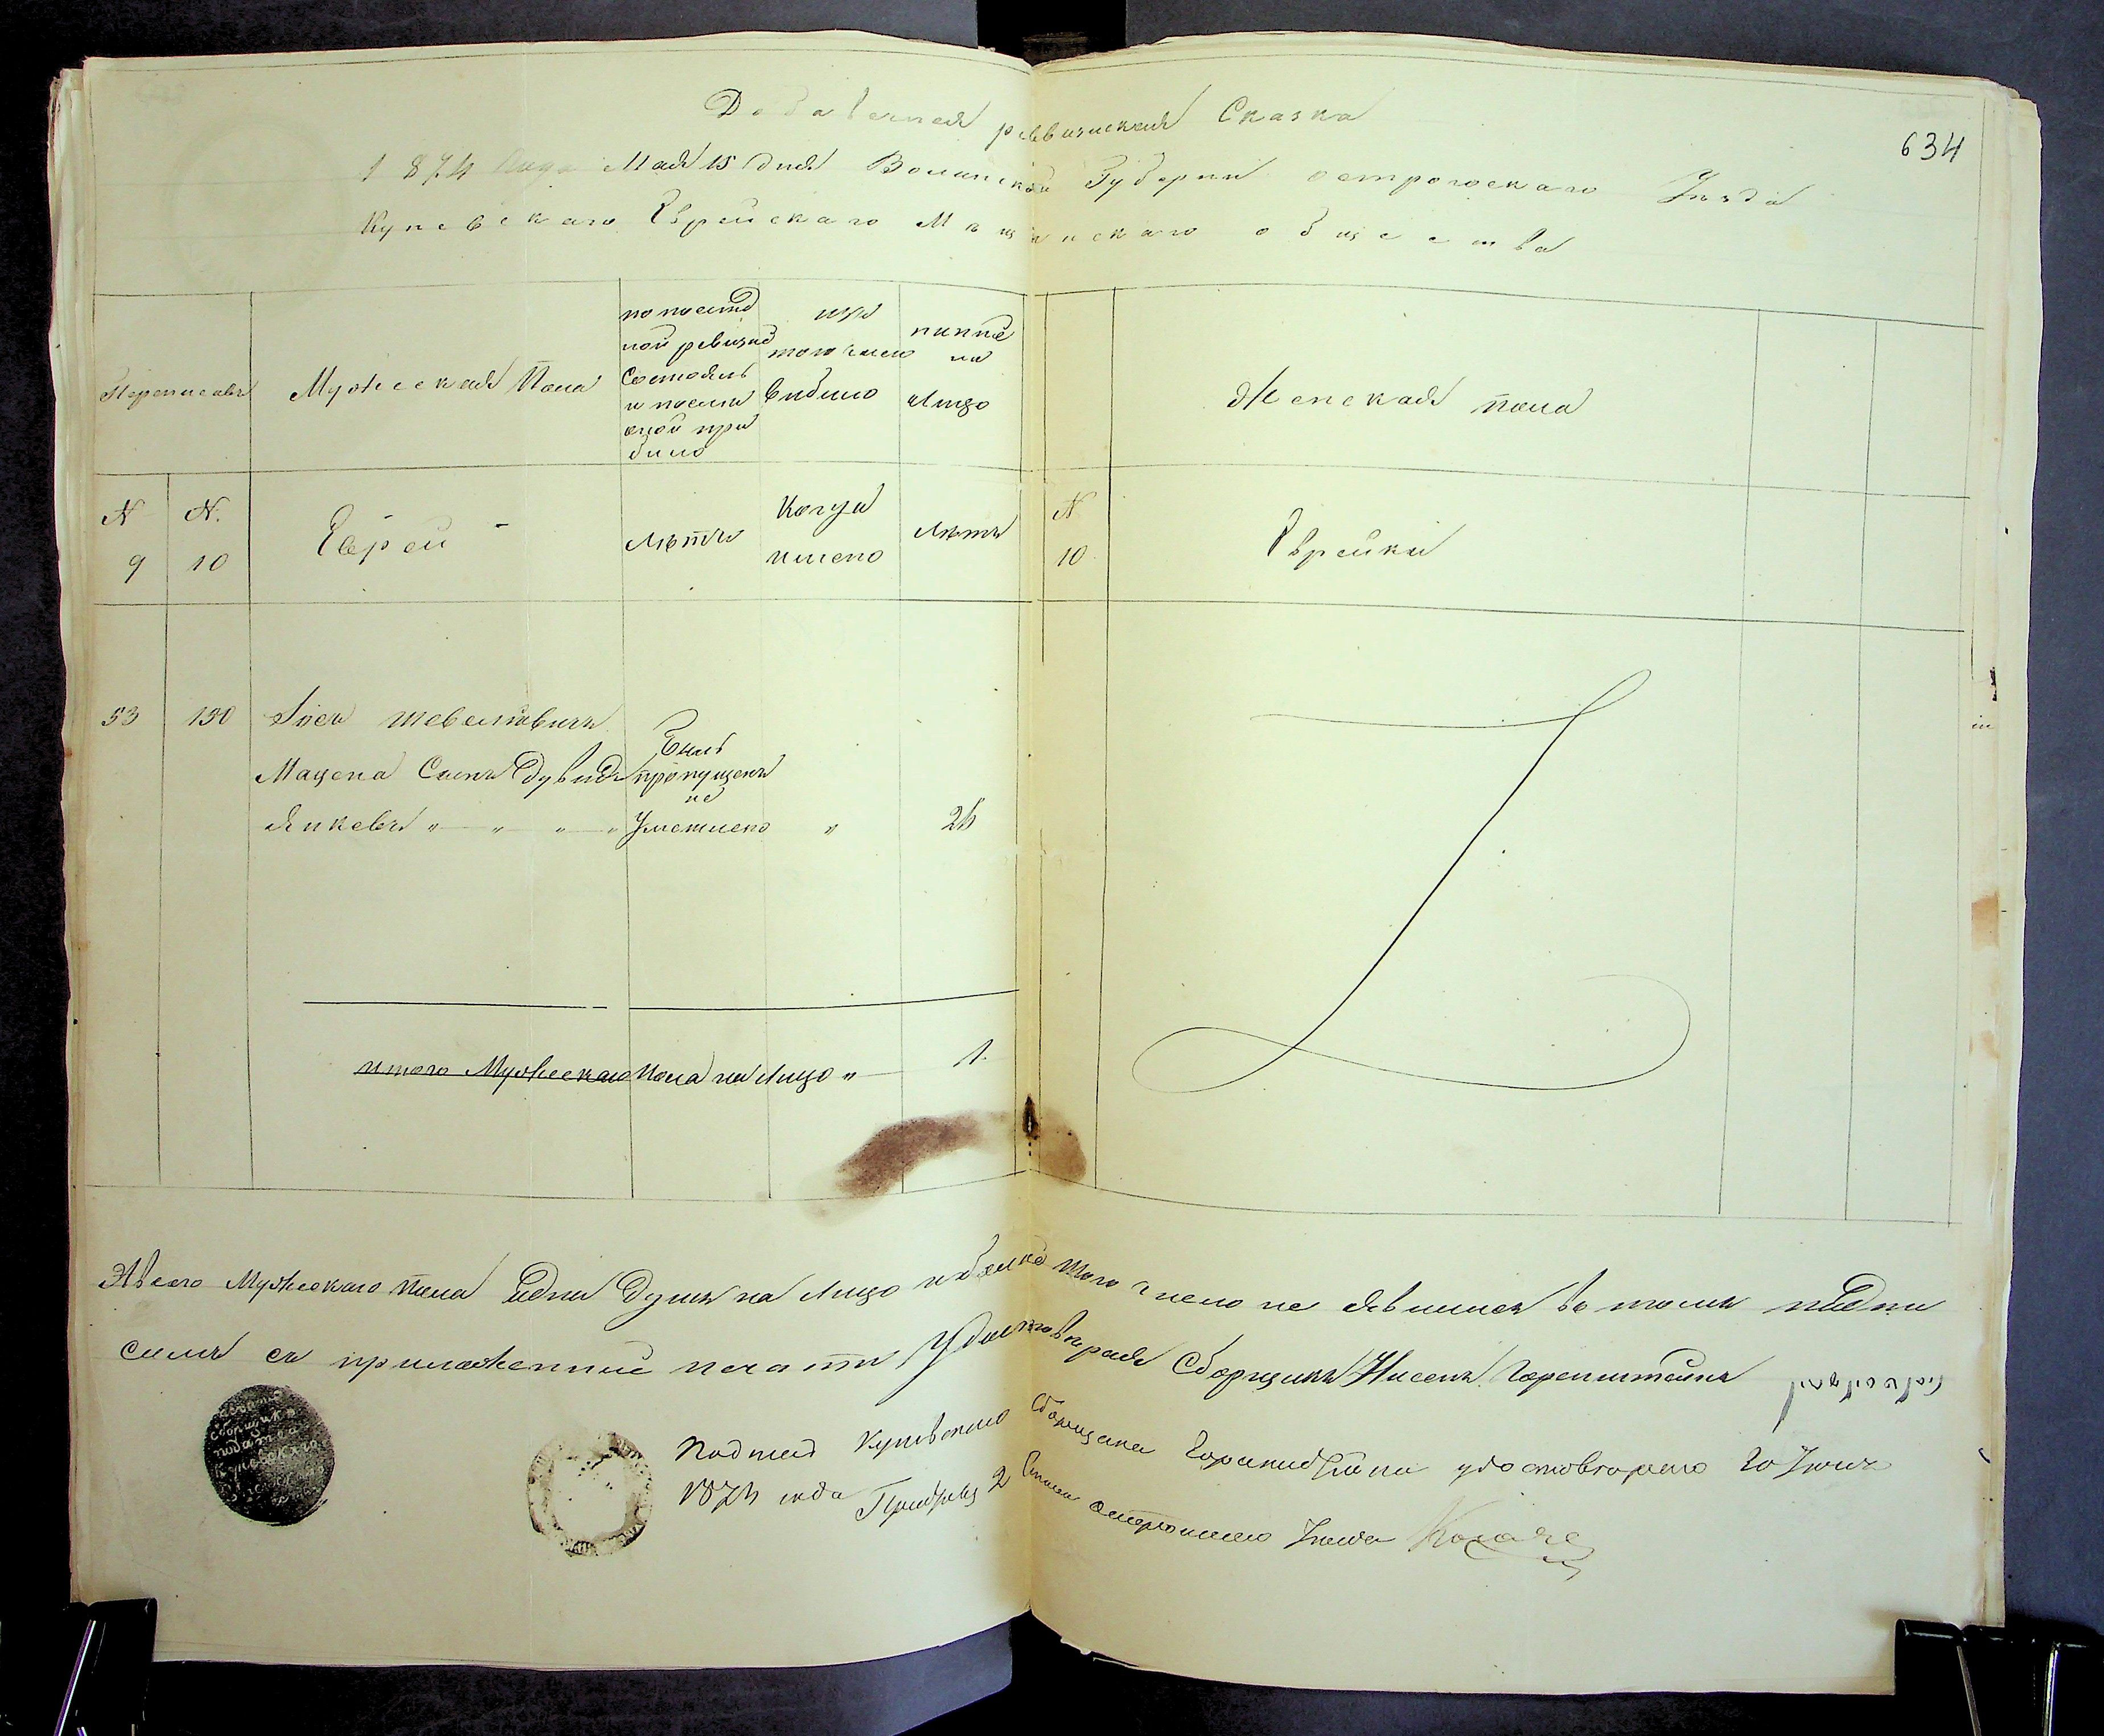 Добавочная ревизиская Сказка
634
1874 Года Мая 15 дня Волинской Губерни острогскаго Уезда
Купевскаго Еврейскаго Мещанскаго общества
Мужескаго Пола
по послед
ней ревизие
Состояль
и после
оной при
било
изъ
того числа
вибило
нинне
на
Лицо
Женская пола
N
9
N.
10
Еврей
Лета
Когда
имено
Лета
N
10
Еврейки
53 150 Иось Шевелювичъ
Мацепа Синъ Дувидъ
Янкевъ " " "
Биль
пропущенъ
не
Уместнено " 24
итого Мужескаго Пола на Лицо " 1.
Мужескаго Пола една Душа на Лицо и более того число не явилися во томъ подпи
симъ съ приложенние печати Удостоверяя Сборщикъ Нисень Горенштейнъ
Подпись Купевского Сборщика Горенштейна удостоверяю
1874 года 2 Стана Острожского Уезда